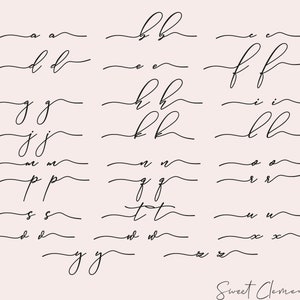 a a b b c c
d d e e f f
g g h h i i
j j k k l l
m m n n o o
p p q q r r
s s t t u u
v v w w x x
y y z z
Sweet Cleme